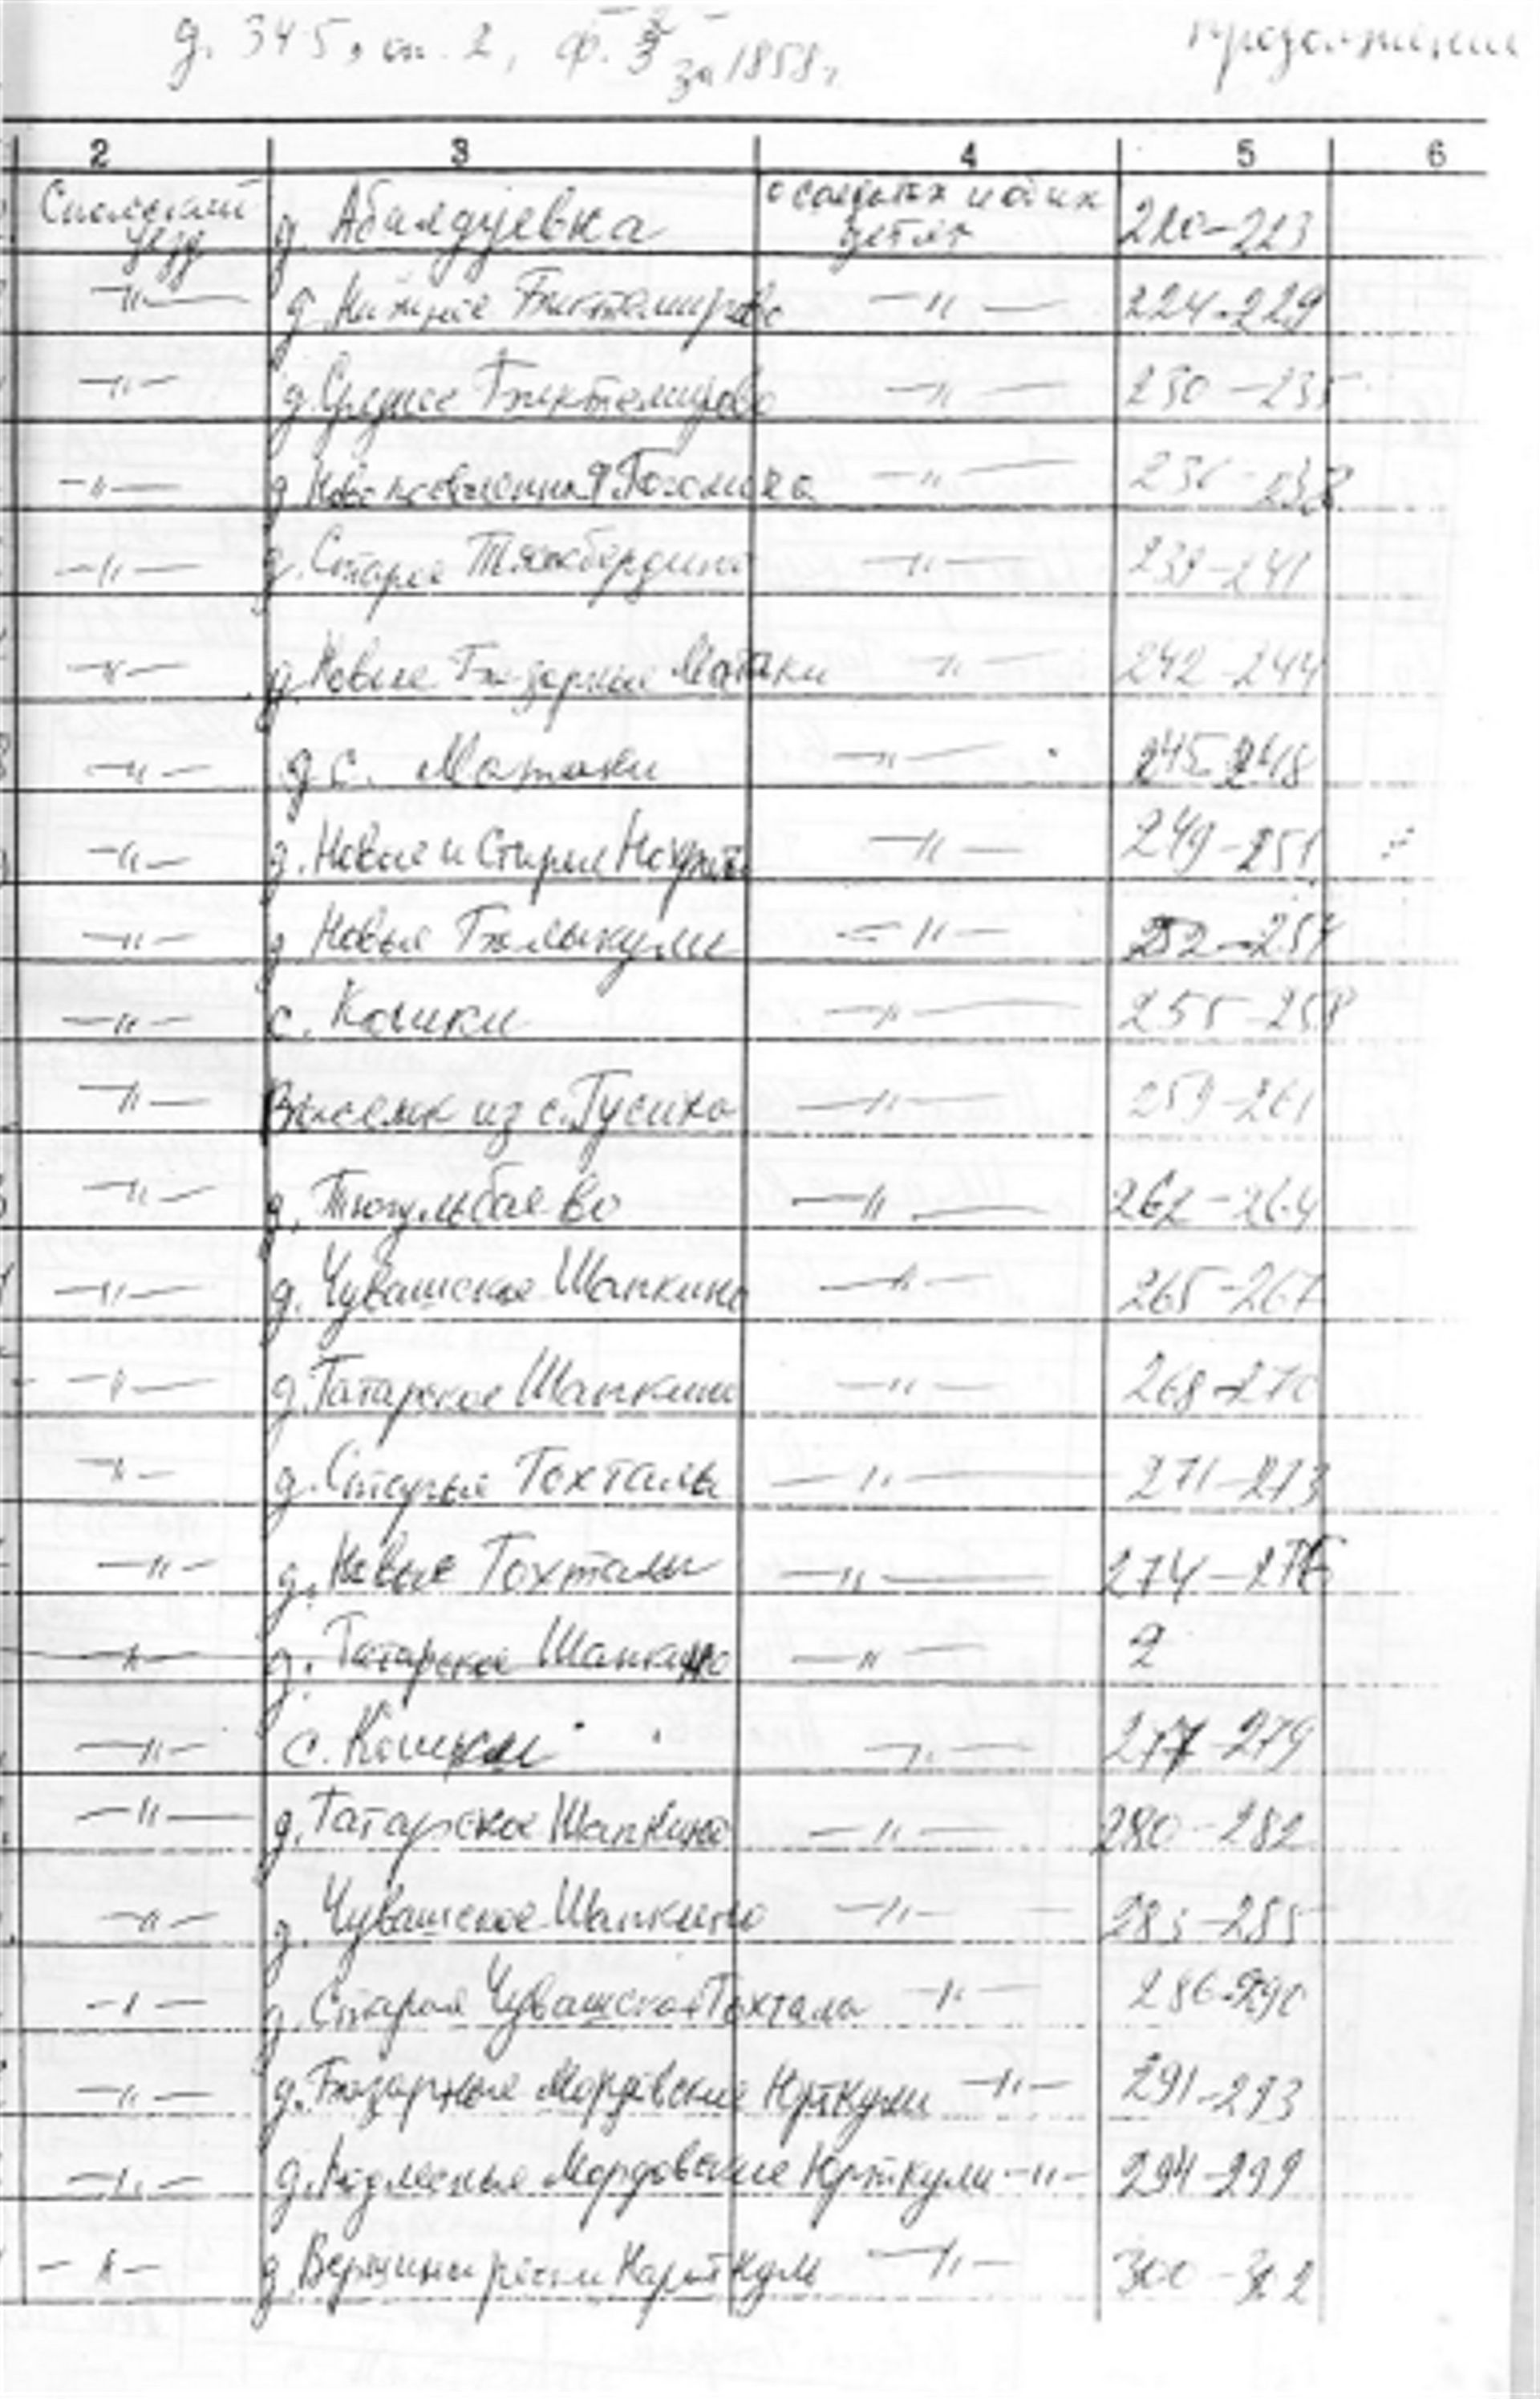 д. 345, оп. 2, ф. 3 за 1858г. продолжение
2 3 4 5 6
Спасский уезд д. Абалдуевка о солдатах и об их детях 220-223
-"- д. Нижнее Биктемирово -"- 224-229
-"- д. Среднее Биктемирово -"- 230-235
-"- д. -"- 236-238
-"- д. Старое Тяжбердино -"- 239-241
-"- д. Новые Базарные Матаки -"- 242-244
-"- д с. Матаки -"- 245-248
-"- д. Новые и Старые -"- 249-251
-"- д Новые Балыкули -"- 252-254
-"- с. Кошки -"- 255-258
-"- Выселок из с. Гусиха -"- 259-261
-"- д. Тюгульбаево -"- 262-264
-"- д. Чувашское Шапкино -"- 265-267
-"- д. Татарское Шапкино -"- 268-270
-"- д. Старые Тохталы -"- 271-273
-"- д. Новые Тохталы -"- 274-276
-"- д. Татарское Шапкино -"- 2
-"- с. Кошки -"- 277-279
-"- д. Татарское Шапкино -"- 280-282
-"- д. Чувашское Шапкино -"- 283-285
-"- д. Старая Чувашская Тохтала -"- 286-290
-"- д. Базарные Мордовские Юрткули -"- 291-293
-"- д. Подлесные Мордовские Юрткули -"- 294-299
-"- д. Вершины речки -"- 300-302